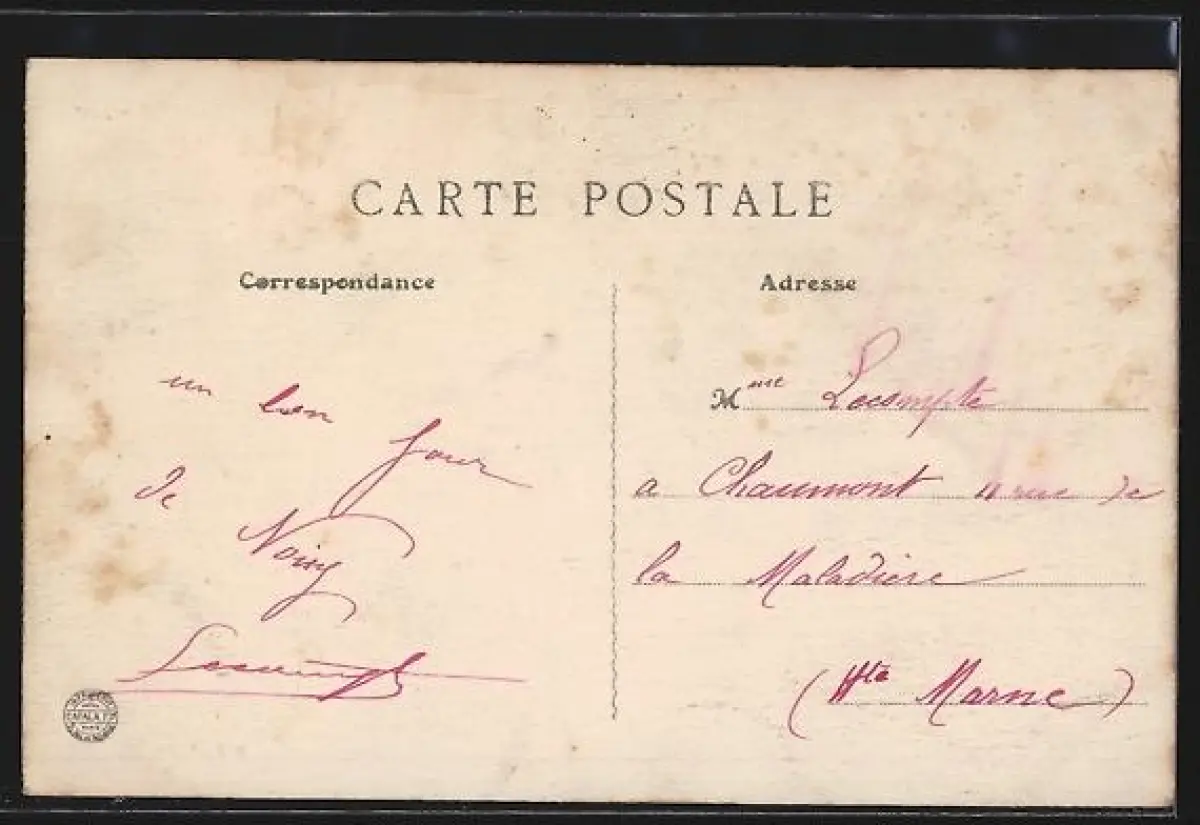 CARTE POSTALE
Correspondance
un bon
Jour
de
Noisy
Adresse
Mme Lecompte
a Chaumont rue de
la Maladière
(Hte Marne)